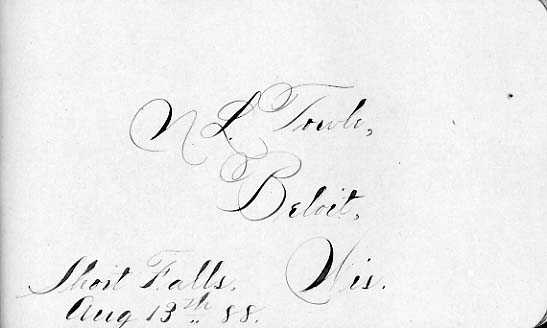 N. L. Towle,
Beloit,
Wis.
Short Falls.
Aug 13th 88.